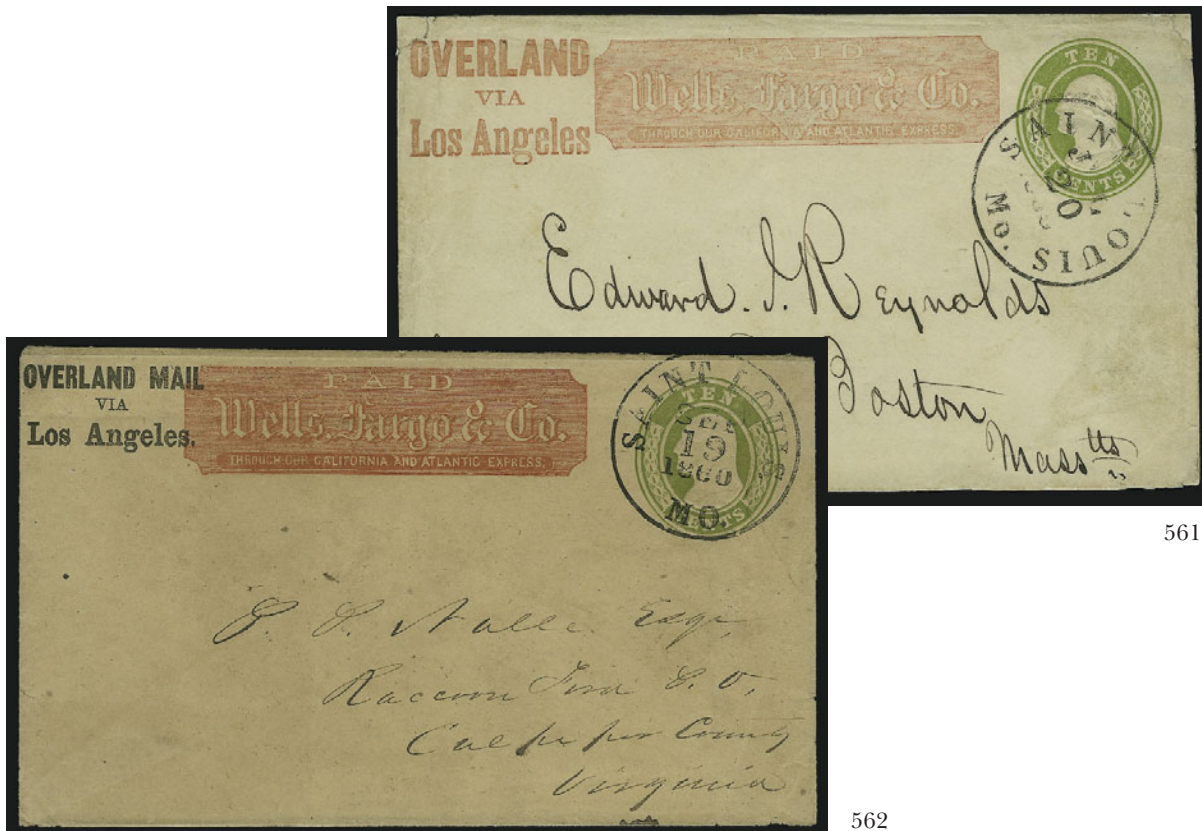 OVERLAND
VIA
Los Angeles
PAID
Wells, Fargo & Co.
THROUGH OUR CALIFORNIA AND ATLANTIC EXPRESS.
TEN
CENTS
SAINT LOUIS
20
Mo.
Edward. J. Reynolds
Boston
Mass tts
561
OVERLAND MAIL
VIA
Los Angeles.
PAID
Wells, Fargo & Co.
THROUGH OUR CALIFORNIA AND ATLANTIC EXPRESS.
TEN
CENTS
SAINT LOUIS
SEP
19
1860
MO.
Nalle Esqr,
Raccoon Ford P. O,
Culpeper County
Virginia
562